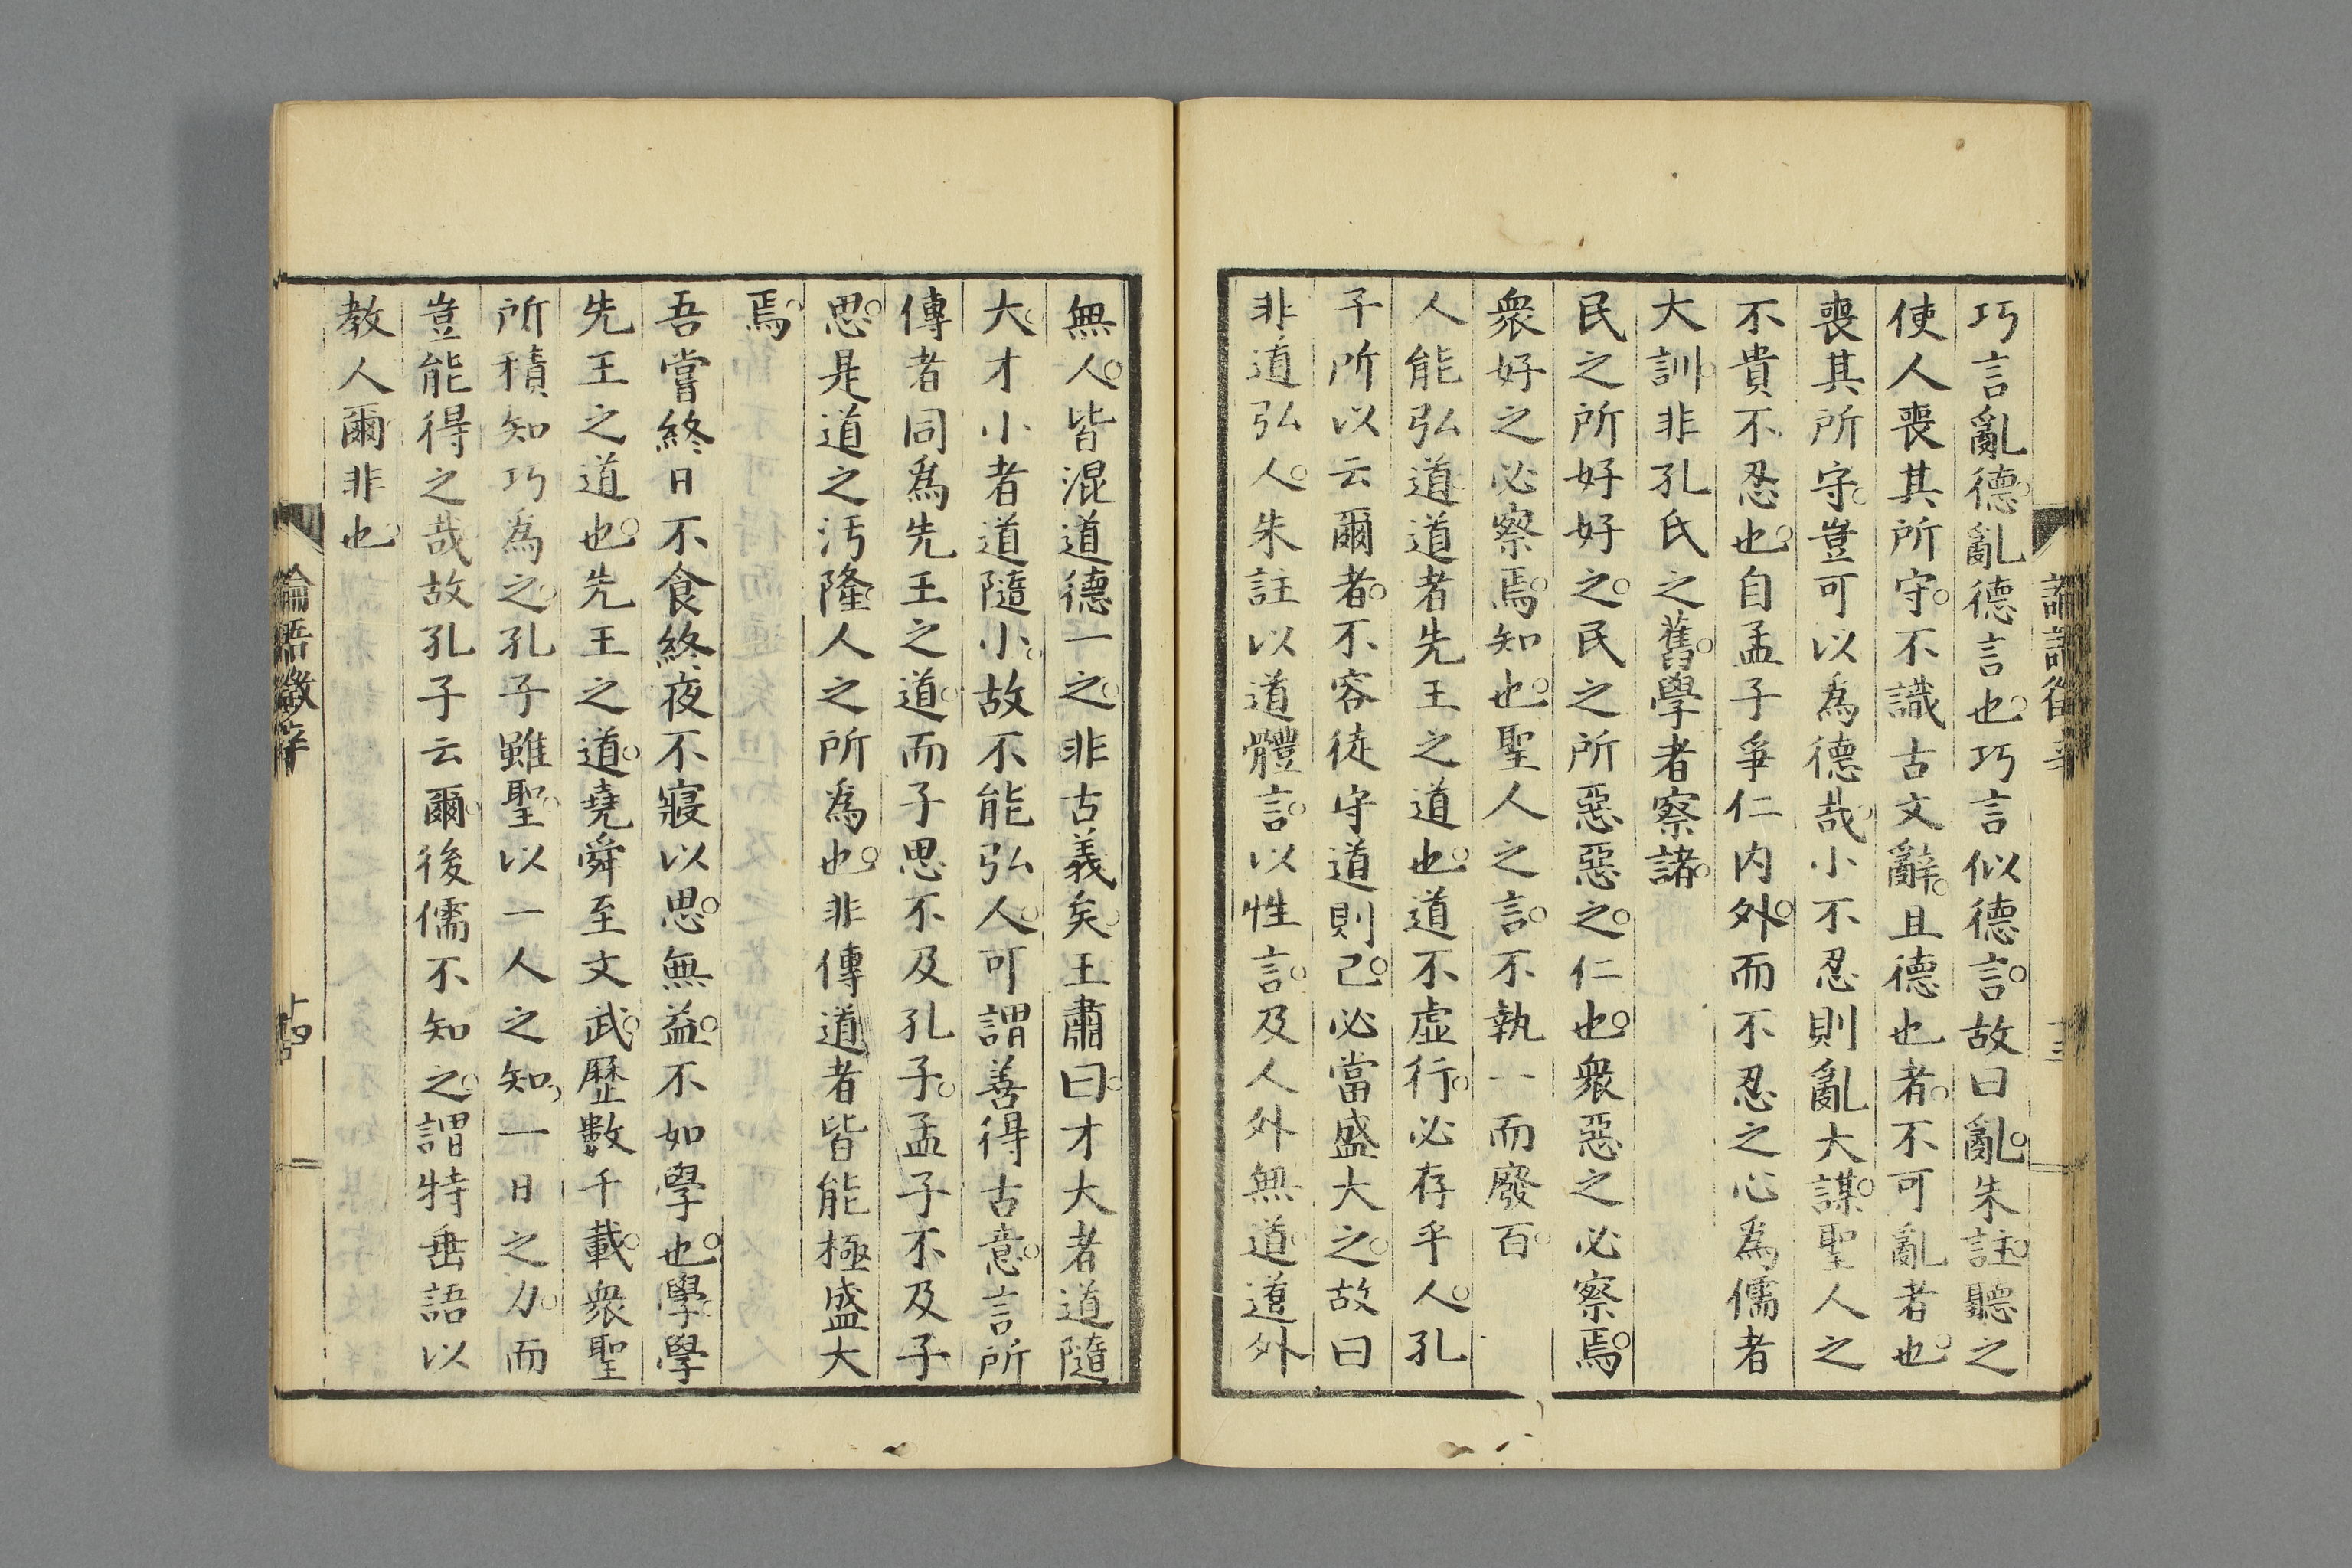 巧言亂德。亂德言也。巧言似德言。故曰亂。朱註。聽之
使人喪其所守。不識古文辭。且德也者。不可亂者也。
喪其所守。豈可以爲德哉。小不忍則亂大謀。聖人之
不貴不忍也。自孟子爭仁内外。而不忍之心爲儒者
大訓。非孔氏之舊。學者察諸。
民之所好好之。民之所惡惡之。仁也。衆惡之必察焉。
衆好之必察焉。知也。聖人之言。不執一而廢百。
人能弘道。道者先王之道也。道不虛行。必存乎人。孔
子所以云爾者。不容徒守道則已。必當盛大之。故曰
非道弘人。朱註以道體言。以性言。及人外無道。道外
無人。皆混道德一之。非古義矣。王肅曰。才大者道隨
大。才小者道隨小。故不能弘人。可謂善得古意。言所
傳者同爲先王之道。而子思不及孔子。孟子不及子
思。是道之汚隆。人之所爲也。非傳道者皆能極盛大
焉。
吾嘗終日不食終夜不寢以思。無益。不如學也。學學
先王之道也。先王之道。堯舜至文武。歷數千載。衆聖
所積知巧爲之。孔子雖聖。以一人之知、一日之力。而
豈能得之哉。故孔子云爾。後儒不知之。謂特垂語以
教人爾。非也。
論語徵 辛
十四